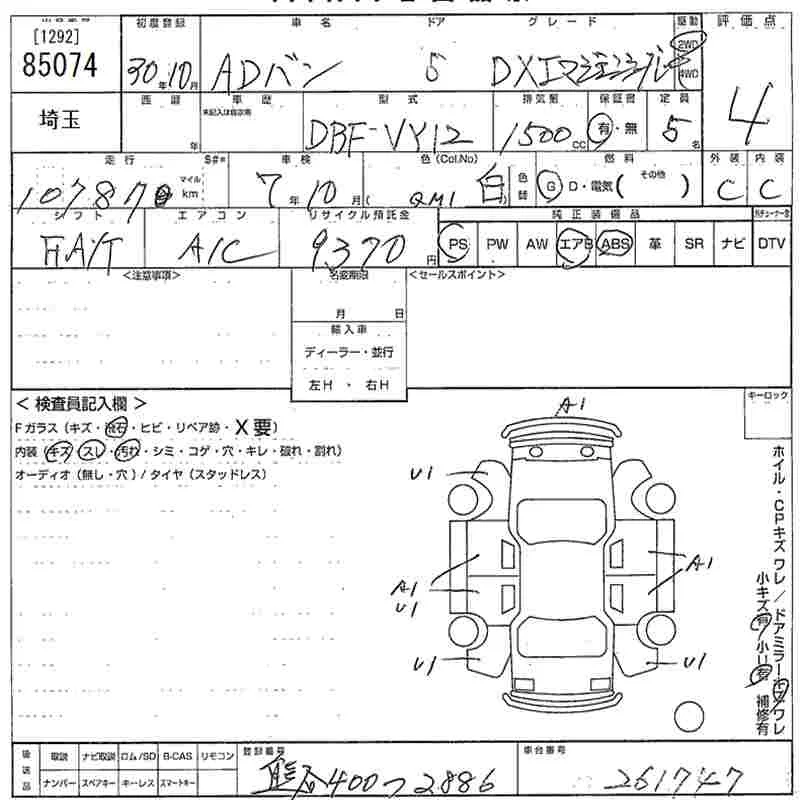 [1292]
85074
初度登録 車名 ドア グレード 駆動 評価点
30年10月 ADバン 5 DX 2WD 4WD 4
西暦 年 車歴 型式 排気量 保証書 定員
埼玉 DBF-VY12 1500cc 有・無 5名
走行 S#* 車検 色(Col.No) 燃料 外装 内装
マイル km 7年10月 (QM1 白) 色替 G D・電気( その他 ) C C
シフト エアコン リサイクル預託金 純正装備品
FA/T A/C 9370円 PS PW AW エアB ABS 革 SR ナビ DTV
<注意事項> 名変期限 <セールスポイント>
月 日
輸入車
ディーラー・並行
左H ・ 右H
< 検査員記入欄 >
Fガラス(キズ・飛石・ヒビ・リペア跡・X要)
内装(キズ・スレ・汚れ・シミ・コゲ・穴・キレ・破れ・割れ)
オーディオ(無し・穴)/タイヤ(スタッドレス)
キーロック
A1
U1
A1
U1
A1
U1
U1
ホイル・CPキズ ワレ/ドアミラーキズワレ
小キズ有 小凹有 補修有
後送品 取説 ナビ取説 ロム/SD B-CAS リモコン 登録番号 車台番号
ナンバー スペアキー キーレス スマートキー 熊谷400つ2886 261747